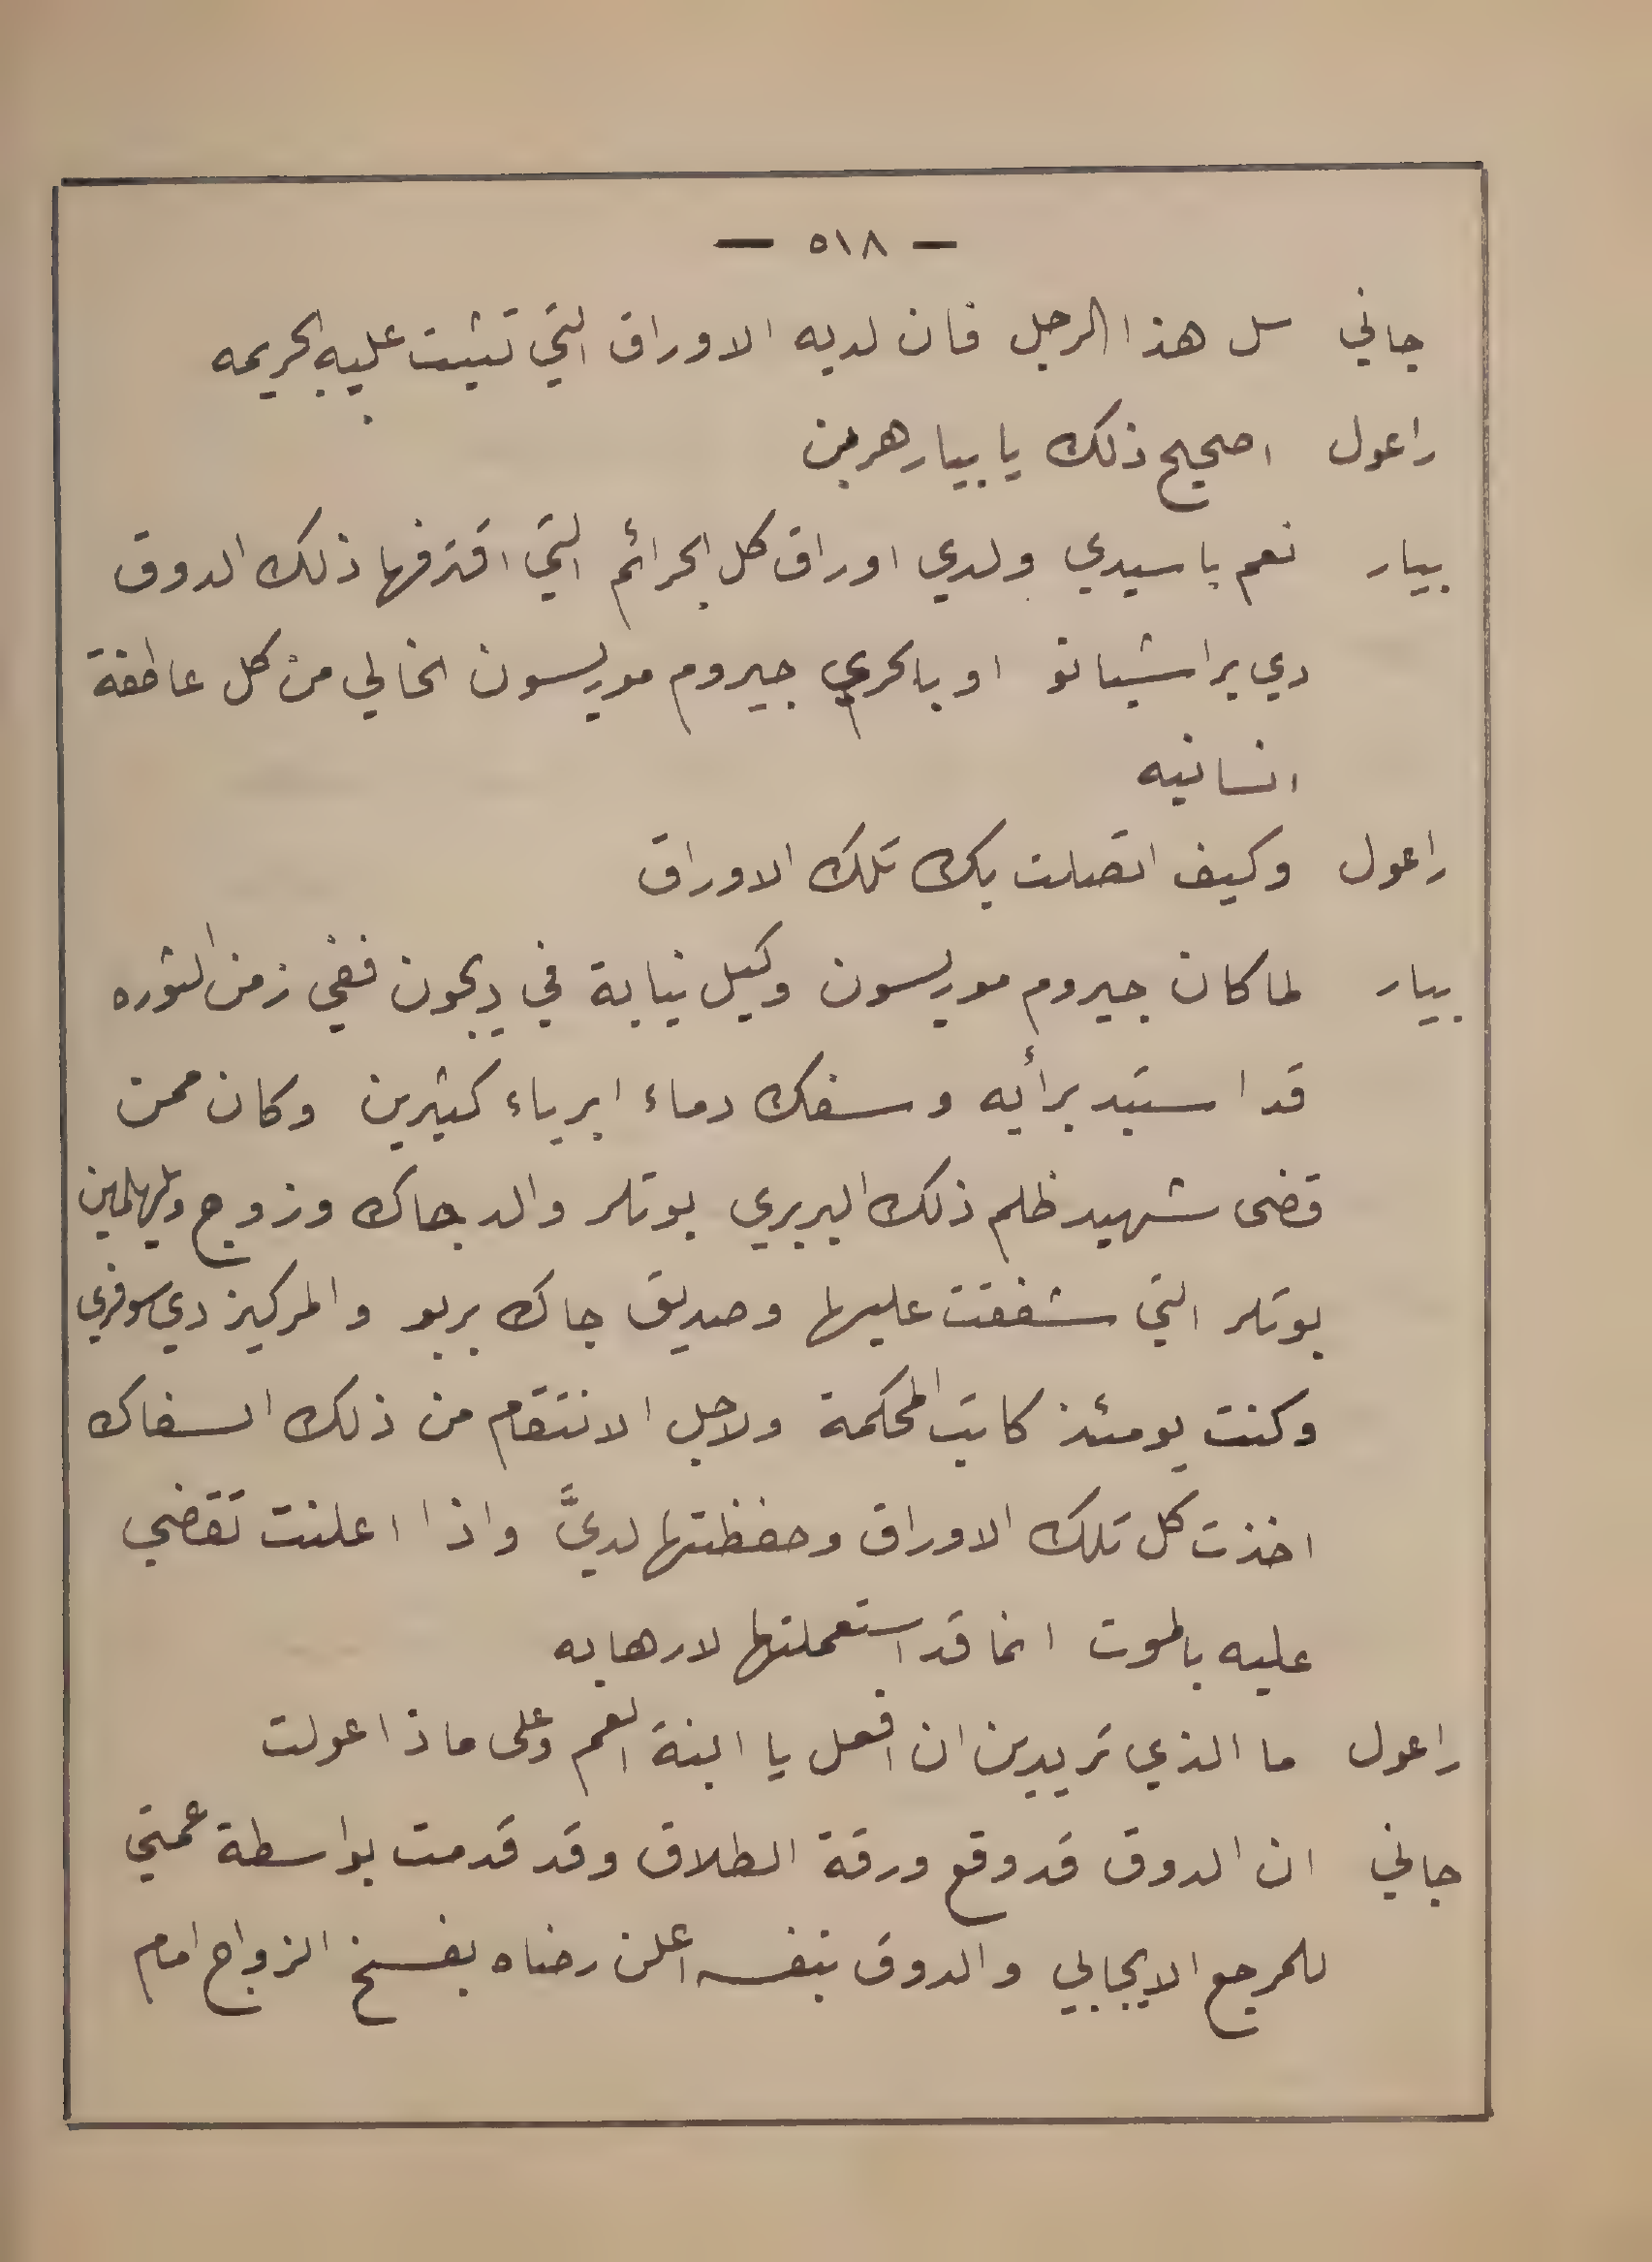 — ٥١٨ —
جاني سل هذا الرجل فان لديه الاوراق التي تثبت عليه الجريمه
راعول اصحيح ذلك يا بيار هربن
بيار نعم يا سيدي ولدي اوراق كل الجرائم التي اقترفها ذلك الدوق
دي براشيانو او بالحري جيروم موريسون الخالي من كل عاطفة
انسانيه
راعول وكيف اتصلت بك تلك الاوراق
بيار لما كان جيروم موريسون وكيل نيابة في ديجون ففي زمن الثوره
قد استبد برأيه وسفك دماء ابرياء كثيرين وكان ممن
قضى شهيد ظلم ذلك البربري بوتلر والد جاك وزوج ويلهلمين
بوتلر التي شفقت عليها وصديق جاك بربو والمركيز دي سوفري
وكنت يومئذ كاتب المحكمة ولاجل الانتقام من ذلك السفاك
اخذت كل تلك الاوراق وحفظتها لديَّ واذا اعلنت تقضي
عليه بالموت انما قد استعملتها لارهابه
راعول ما الذي تريدين ان افعل يا ابنة العم وعلى ماذا عولت
جاني ان الدوق قد وقع ورقة الطلاق وقد قدمت بواسطة عمتي
للمرجع الايجابي والدوق بنفسه اعلن رضاه بفسخ الزواج امام